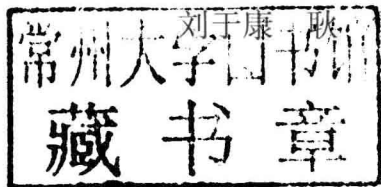 刘于康
常州大学图书馆
藏书章